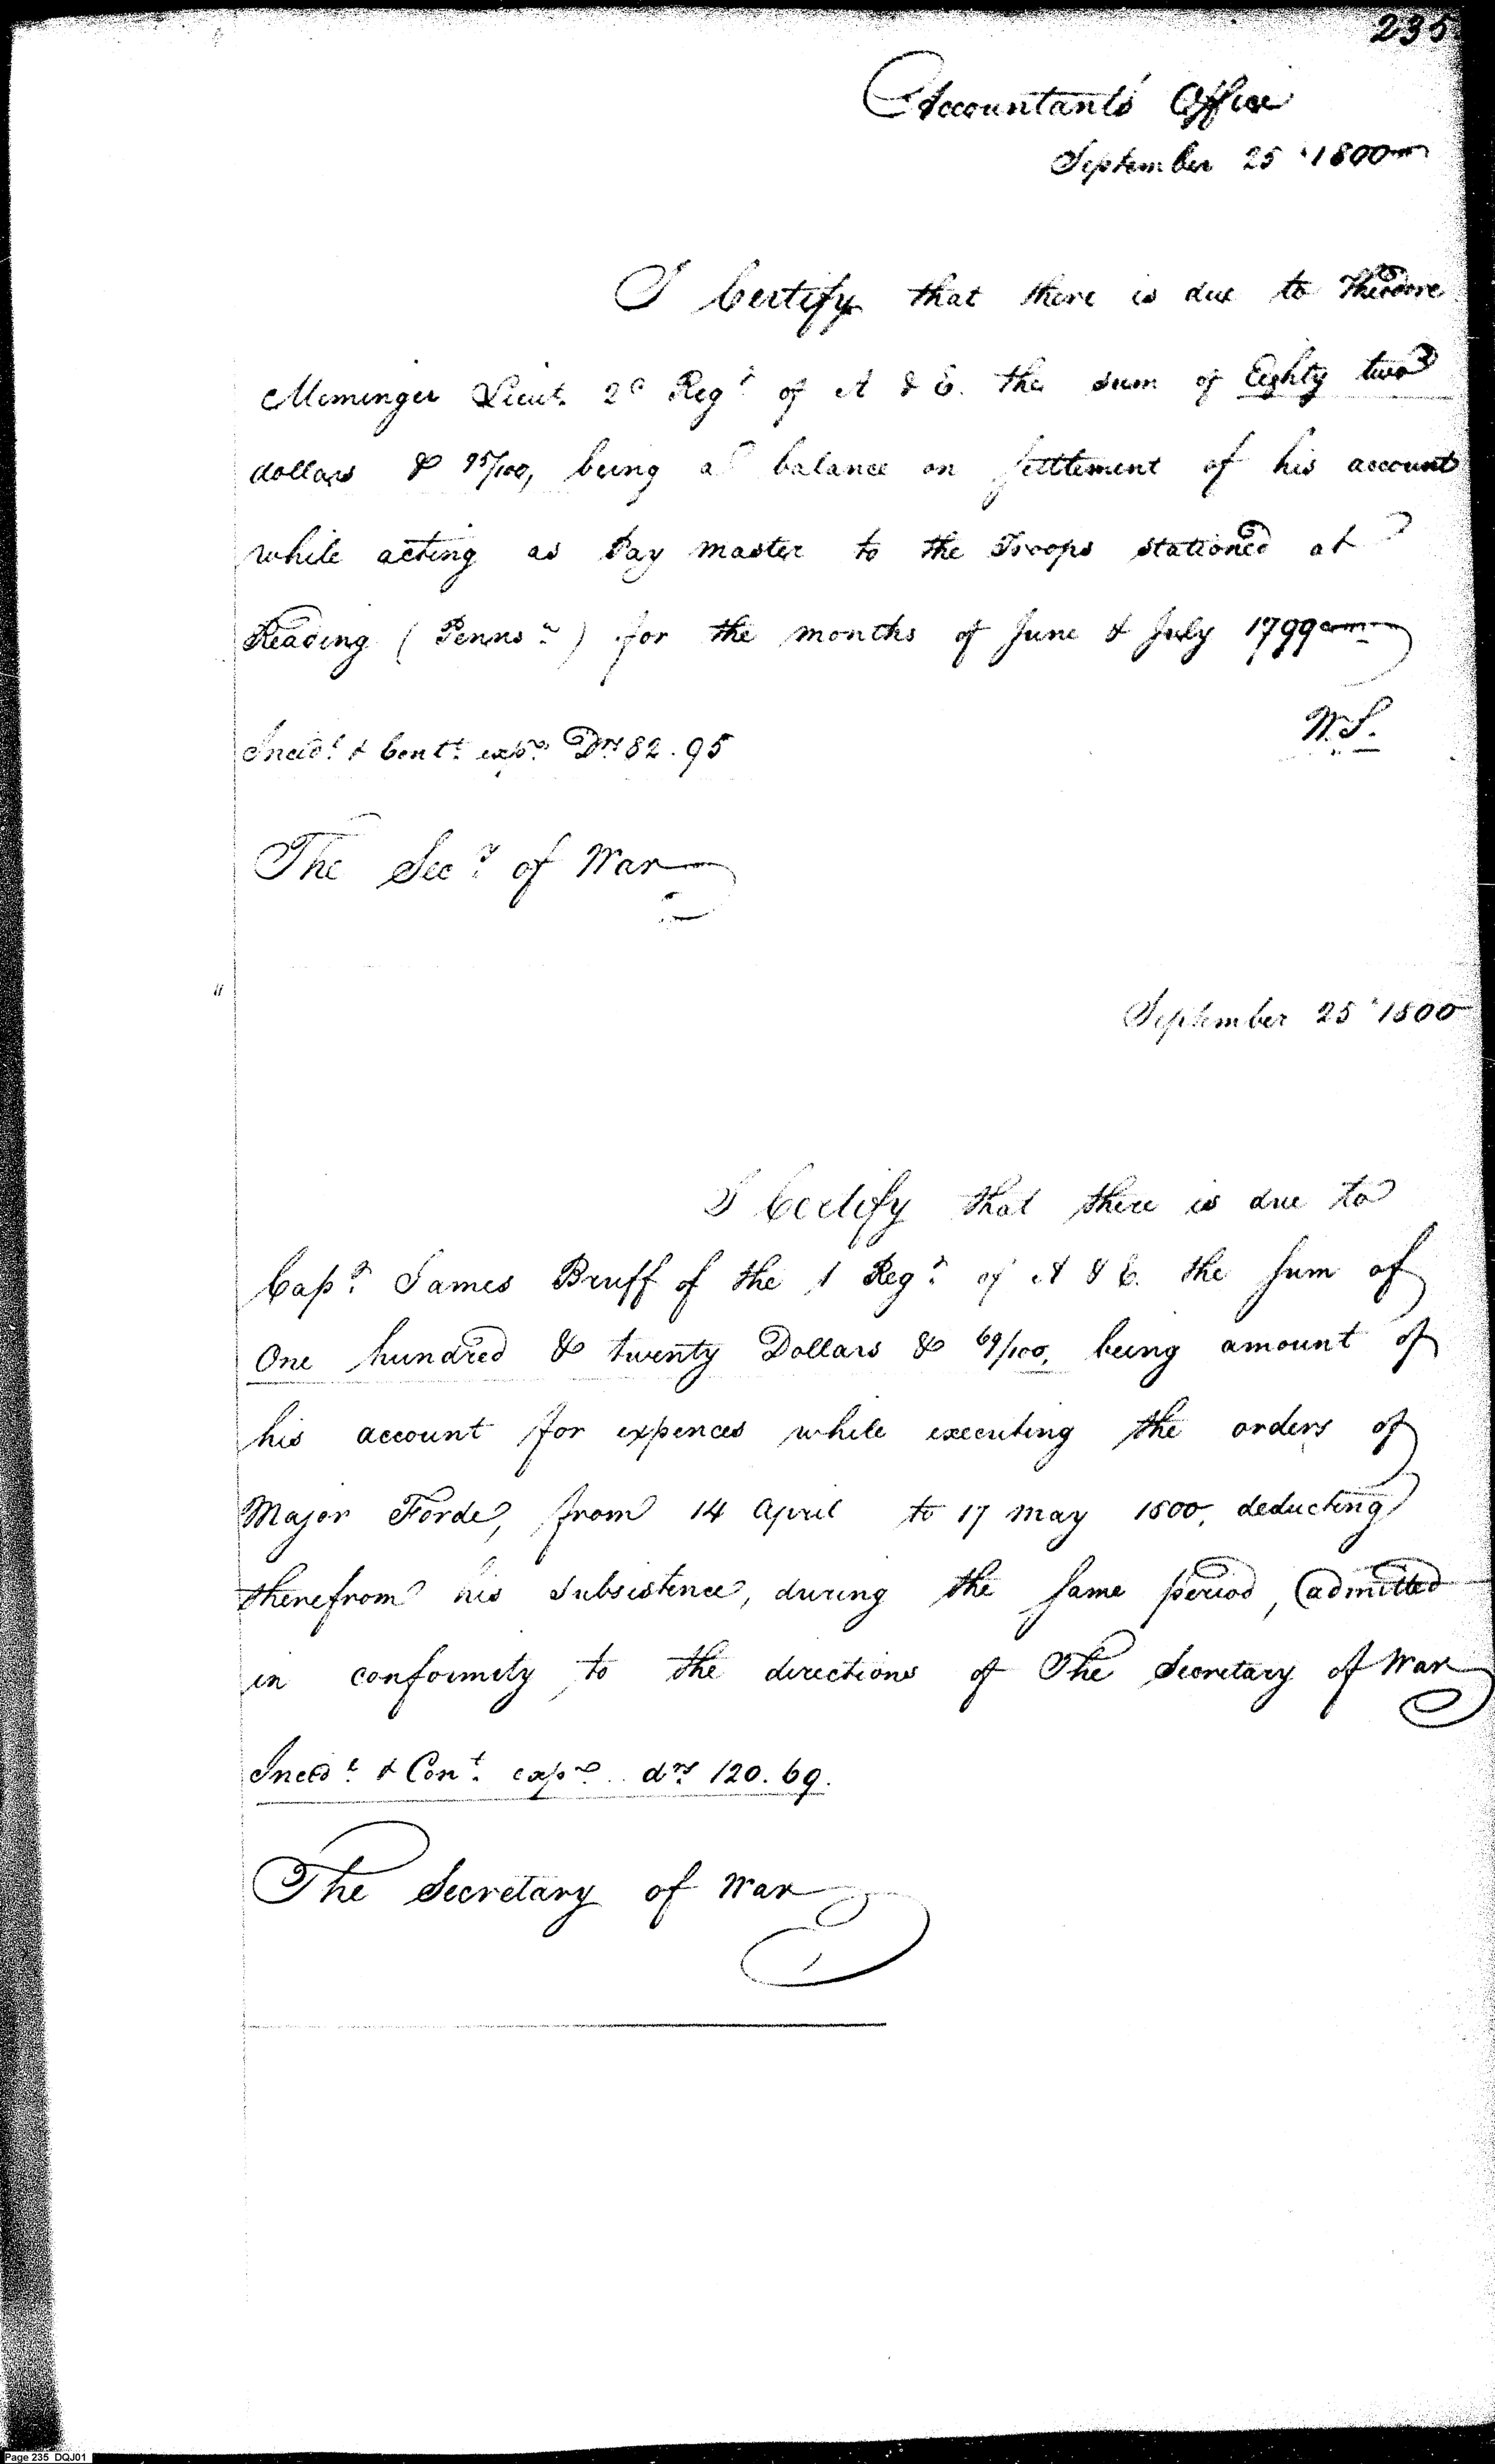 235
Accountants' Office
September 25 1800
I Certify that there is due to Theodore
Memminger Lieut. 2d Regt of A & E. the sum of Eighty two
dollars & 95/100, being a balance on settlement of his account
while acting as Pay master to the Troops stationed at
Reading (Pennsa) for the months of June & July 1799
W.S.
Incidt & Cont. exps Drs 82.95
The Secy of War
September 25 1800
I Certify that there is due to
Capt. James Bruff of the 1 Regt. of A & E. the sum of
One hundred & twenty Dollars & 69/100, being amount of
his account for expences while executing the orders of
Major Forde, from 14 April to 17 May 1800, deducting
therefrom his subsistence, during the same period, admitted
in conformity to the directions of The Secretary of War
Incidt & Cont. exps drs 120.69.
The Secretary of War
Page 235 DQJ01